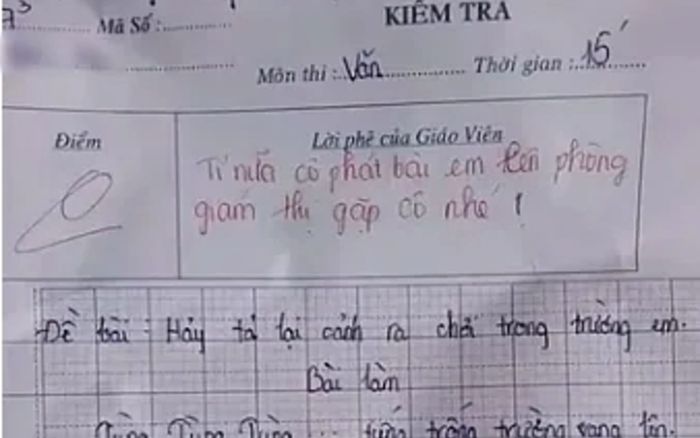 KIỂM TRA
7³ Mã Số :
Môn thi : Văn Thời gian : 15'
Điểm
0
Lời phê của Giáo Viên
Tí nữa cô phát bài em lên phòng
giám thị gặp cô nhé !
Đề bài : Hãy tả lại cảnh ra chơi trong trường em.
Bài làm
Tùng Tùng Tùng ... tiếng trống trường vang lên.